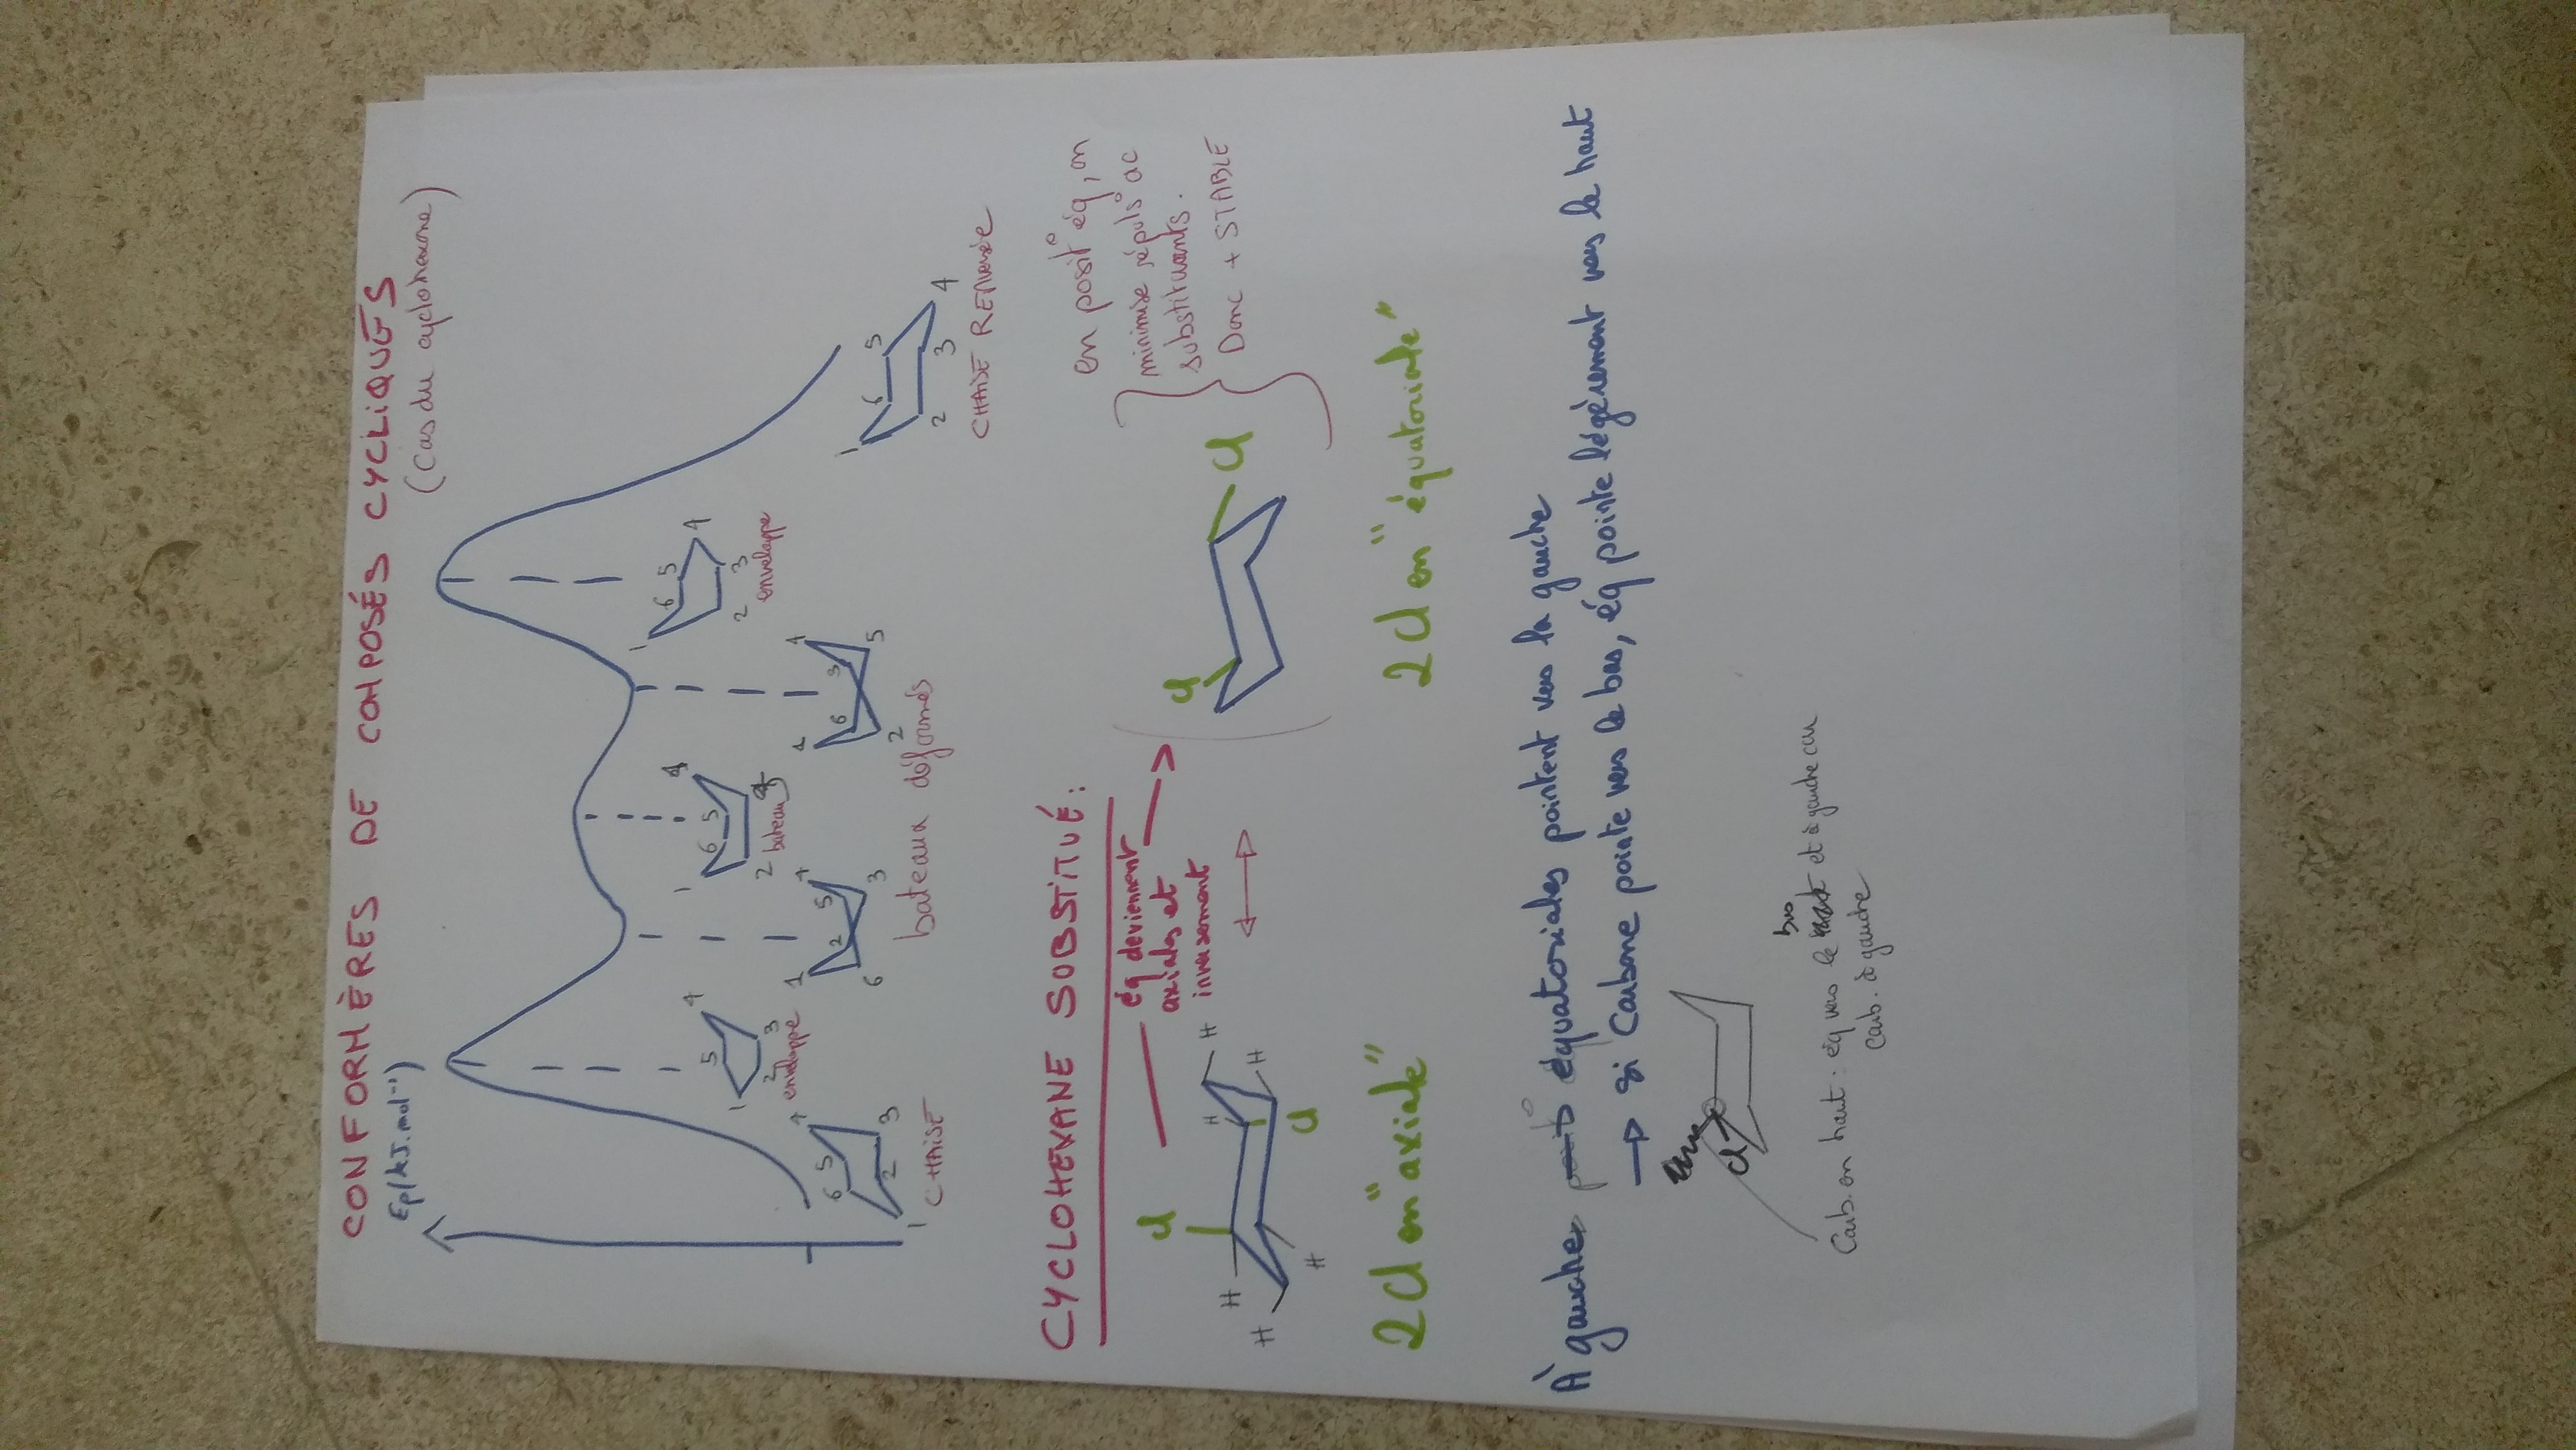 CONFORMÈRES DE COMPOSÉS CYCLIQUES
(Cas du cyclohexane)
Ep/kJ.mol⁻¹)
1 2 3 4 5 6
CHAISE
1 2 3 4 5
enveloppe
1 2 3 4 5 6
1 2 3 4 5 6
bateau
1 2 3 4 5 6
bateaux déformés
1 2 3 4 5 6
enveloppe
1 2 3 4 5 6
CHAISE RENversée
CYCLOHEXANE SUBSTITUÉ :
éq deviennent
axiales et
inversement
H H Cl H H H H Cl
2 Cl en "axiale"
Cl Cl
2 Cl en "équatoriale"
en posit° éq, on
minimise répuls° ac
substituants.
Donc + STABLE
À gauche, équatoriales pointent vers la gauche
→ si Carbone pointe vers le bas, éq pointe légèrement vers le haut
Cl
Carb. en haut : éq vers le bas et à gauche car
Carb. à gauche